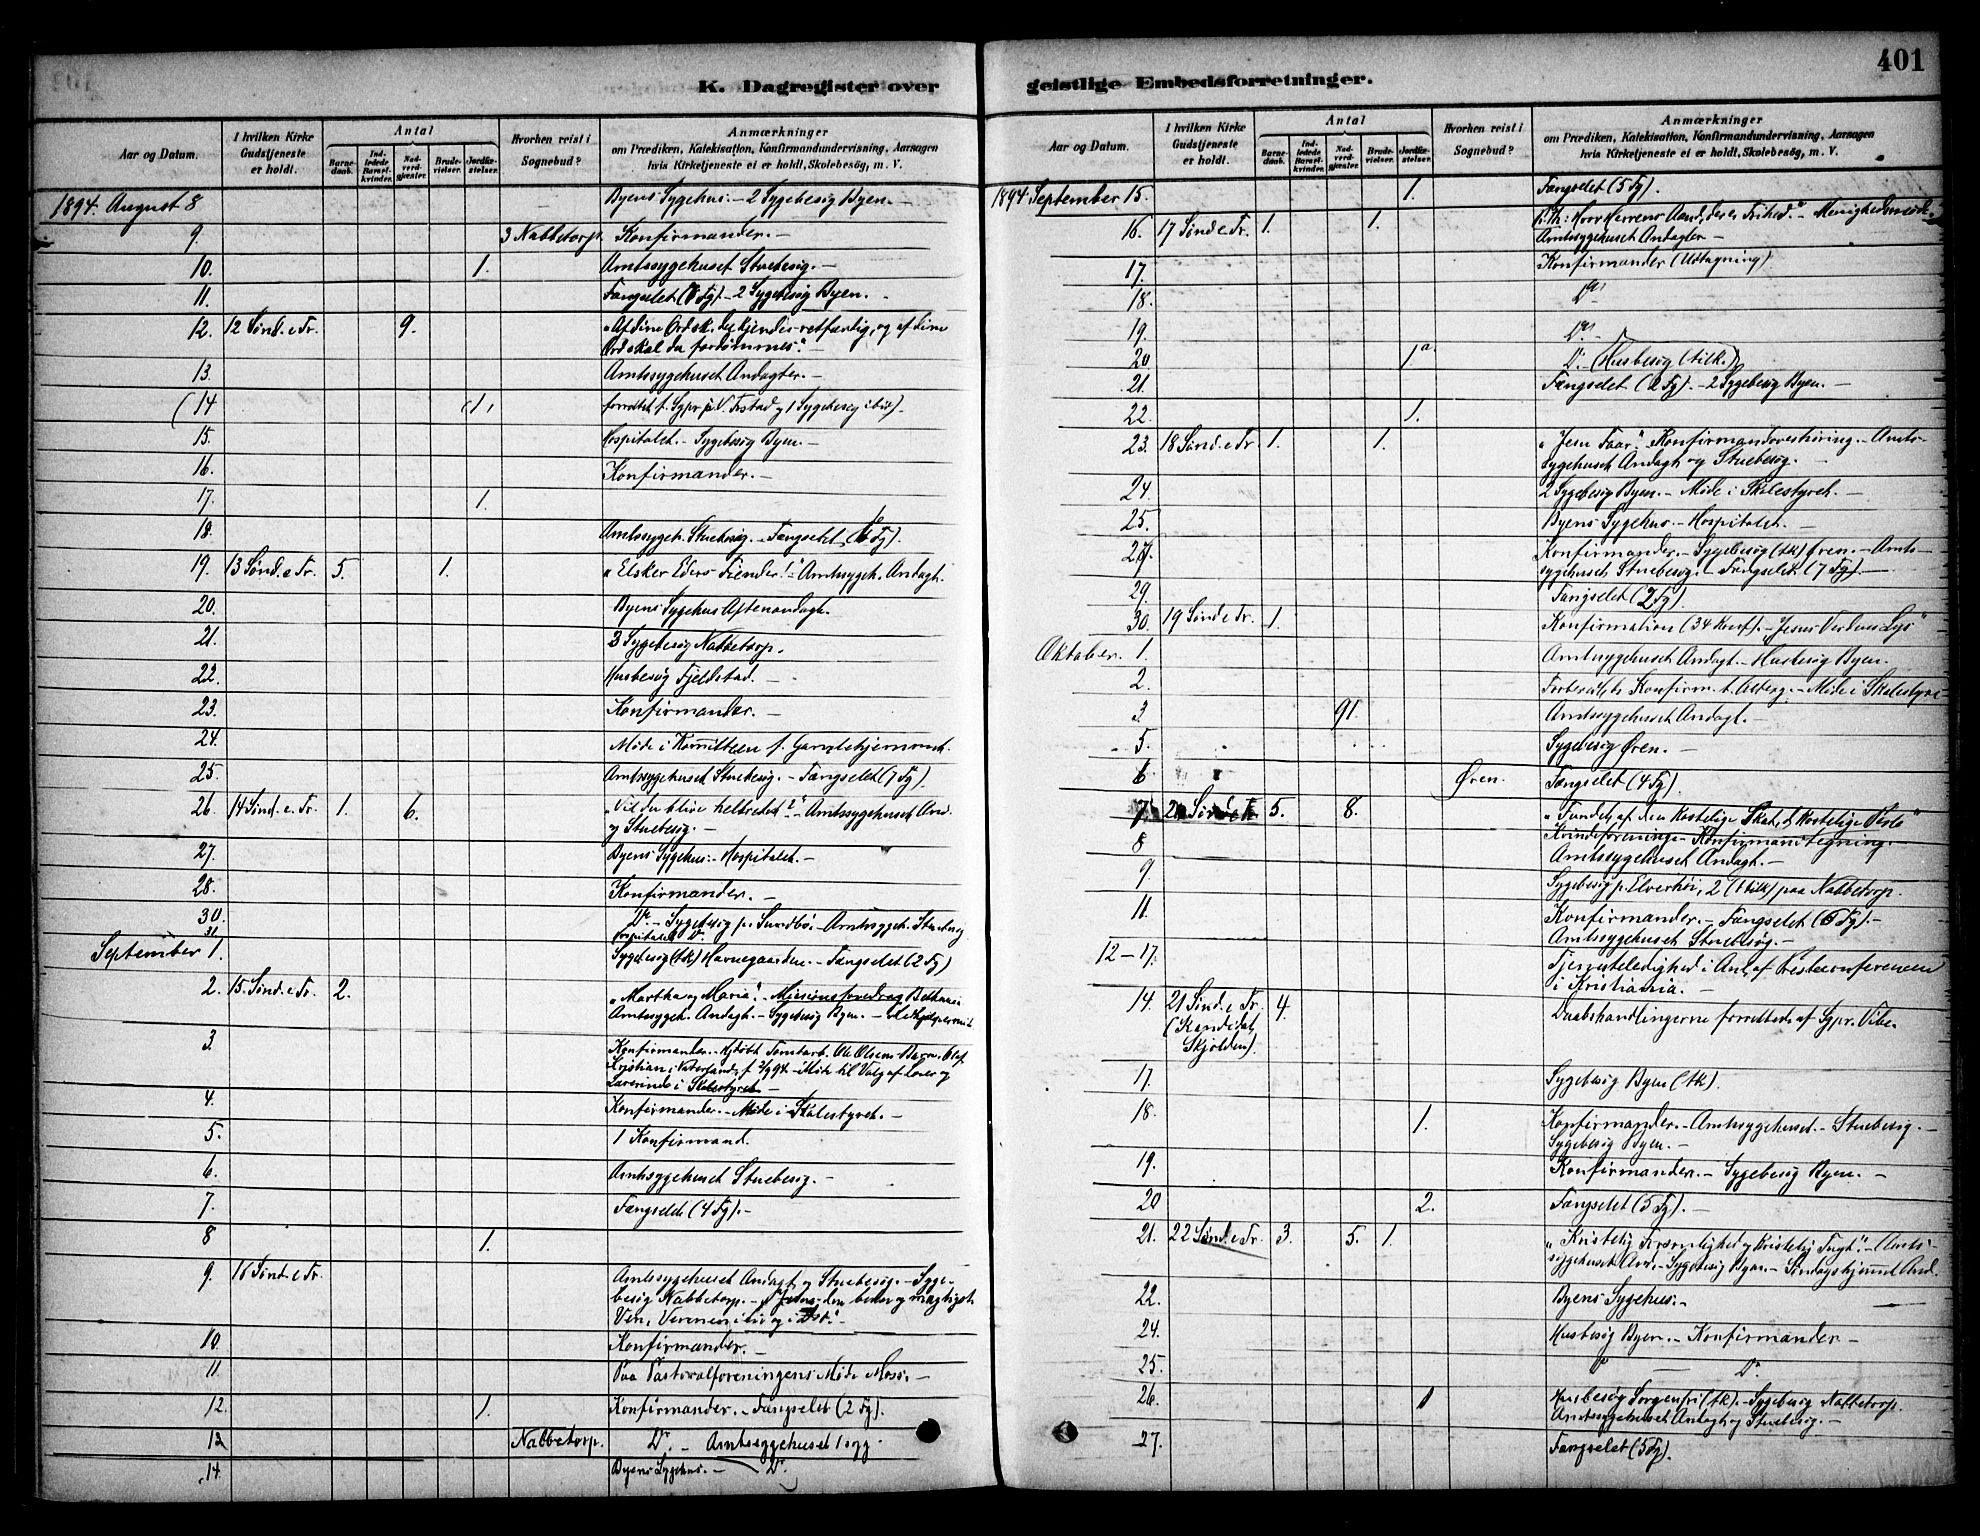 K. Dagregister over
Aar og Datum.
I hvilken Kirke Gudstjeneste er holdt.
Antal
Barnedaab.
Indledede Barselkvinder.
Nadverdgjæster.
Brudevielser.
Jordfæstelser.
Hvorhen reist i Sognebud?
Anmærkninger
om Prædiken, Katekisation, Konfirmandundervisning, Aarsagen
hvis Kirketjeneste ei er holdt, Skolebesög, m. V.
1894. August 8 Byens Sygehus. - 2 Sygebesög Byen. -
9. 3 Nabbetorp. Konfirmander. -
10. 1. Amtssygehuset Stuebesög. -
11. Fængselet (6 Fg) - 2 Sygebesög Byen. -
12. 12 Sönd. e Tr. 9. "Af dine Ord sk. du kjendes retfærdig, og af dine
Ord skal du fordömmes". -
13. Amtssygehuset Andagter. -
(14 (1, forrettet f. Sgpr p. V. og 1 Sygebesög i bis) -
15. Hospitalet. - Sygebesög Byen. -
16. Konfirmander. -
17. 1.
18. Amtssygeh. Stuebesög. - Fængselet (6 Fg).
19. 13 Sönd. e Tr. 5. 1. "Elsker Eders Fiender!" - Amtssygeh. Andagt.
20. Byens Sygehus Aftenandagt.
21. 3 Sygebesög Nabbetorp.
22. Husbesög Fjeldstad.
23. Konfirmander. -
24. Möde i Komitteen f. Gamlehjemmet.
25. Amtssygehuset Stuebesög. - Fængselet (7 Fg).
26. 14 Sönd. e Tr. 1. 6. "Vil du blive helbredet?" - Amtssygehuset And.
og Stuebesög. -
27. Byens Sygehus. - Hospitalet. -
28. Konfirmander. -
30. Do - Sygebesög paa Sundbö. - Amtssygeh. Stuebesög
31 Hospitalet Do.
September 1. Sygebesög (tk) Havnegaarden. - Fængselet (2 Fg)
2. 15. Sönd. e Tr. 2. "Martha og Maria". - Missionsforedrag Bethania
Amtssygeh. Andagt. - Sygebesög Byen. -
3. Konfirmander. - Hjdöbt Tomtarb. Ole Olsens Barn Olaf
Kristian i Vaterland, f. 2/9 94 - Möde til Valg af Lærer og
Lærerinde i Skolestyret
4. Konfirmander. - Möde i Skolestyret. -
5. 1 Konfirmand.
6. Amtssygehuset Stuebesög. -
7. Fængselet (4 Fg). -
8 1.
9. 16 Sönd. e Tr. Amtssygehuset Andagt og Stuebesög. - Syge-
besög Nabbetorp. - "Jesus den bedste og mægtigste
Ven, Vennen i Liv og i Död". -
10. Konfirmander. -
11 Paa Pastoralforeningens Möde Moss. -
12. 1. Konfirmander. - Fængselet (2 Fg).
13 Nabbetorp. Do. - Amtssygehuset 1 syg. -
14. Byens Sygehus. - Do.
401
geistlige Embedsforretninger.
Aar og Datum.
I hvilken Kirke Gudstjeneste er holdt.
Antal
Barnedaab.
Indledede Barselkvinder.
Nadverdgjæster.
Brudevielser.
Jordfæstelser.
Hvorhen reist i Sognebud?
Anmærkninger
om Prædiken, Katekisation, Konfirmandundervisning, Aarsagen
hvis Kirketjeneste ei er holdt, Skolebesög, m. V.
1894. September 15. 1. Fængselet (5 Fg).
16. 17 Sönd. e Tr. 1. 1. Hvor Herrens Aand, der er Frihed. - Menighedsmöde.
Amtssygehuset Andagter -
17. Konfirmander (Udtagning)
18. Do
19. Do -
20 1 a. Do. - (Husbesög (tilk.)
21. Fængselet (2 Fg). - 2 Sygebesög Byen. -
22. 1.
23. 18 Sönd. e Tr 1. 1. "Jesu Faar". Konfirmandoverhöring. - Amts-
sygehuset Andagt og Stuebesög. -
24. 2 Sygebesög Byen. - Möde i Skolestyret. -
25. Byens Sygehus - Hospitalet. -
27. Konfirmander. - Sygebesög (tk) Øren. - Amts-
sygehuset Stuebesög. - Fængselet (7 Fg) -
29. Fængselet (2 Fg).
30. 19 Sönd e Tr. 1. Konfirmation (34 Konf). - "Jesus Verdens Lys"
Oktober. 1. Amtssygehuset Andagt. - Husbesög Byen.
2. Möde i Skolestyret
3 91. Amtssygehuset Andagt. -
5. Sygebesög Øren. -
6 Øren. Fængselet (4 Fg).
7. 20 Sönd e Tr 5. 8. "Fundet af den kostelige Skat, d. kostelige Perle"
Kvindeforening. - Konfirmandtegning. -
8 Amtssygehuset Andagt. -
9 Sygebesög p. Elverhöi, 2 (tilk) paa Nabbetorp.
11. Konfirmander. - Fængselet (6 Fg). -
Amtssygehuset Stuebesög. -
12 - 17. Tjenesteledighed i Anl. af Presteconferencen
i Kristiania. -
14. 21 Sönd. e Tr. (Kandidat Skjölden). 4. Daabshandlingerne forrettede af Sgpr. Vibe.
17. Sygebesög Byen (tk).
18. 1. Konfirmander. - Amtssygehuset - Stuebesög. -
Sygebesög Byen. -
19. Konfirmander. - Sygebesög Byen. -
20 2. Fængselet (5 Fg). -
21. 22 Sönd. e Tr. 3. 5. 1. "Kristelig Forsonlighed og kristelig Tugt". - Amts-
sygehuset And. - Sygebesög Byen. - Söndagshjemmet And.
22. Byens Sygehus. -
24. Husbesög Byen. - Konfirmander -
25. Do - Do.
26. 1 Husbesög Sorgenfri (tk). - Sygebesög Nabbetorp.
Amtssygehuset Andagt og Stuebesög. -
27. Fængselet (5 Fg).